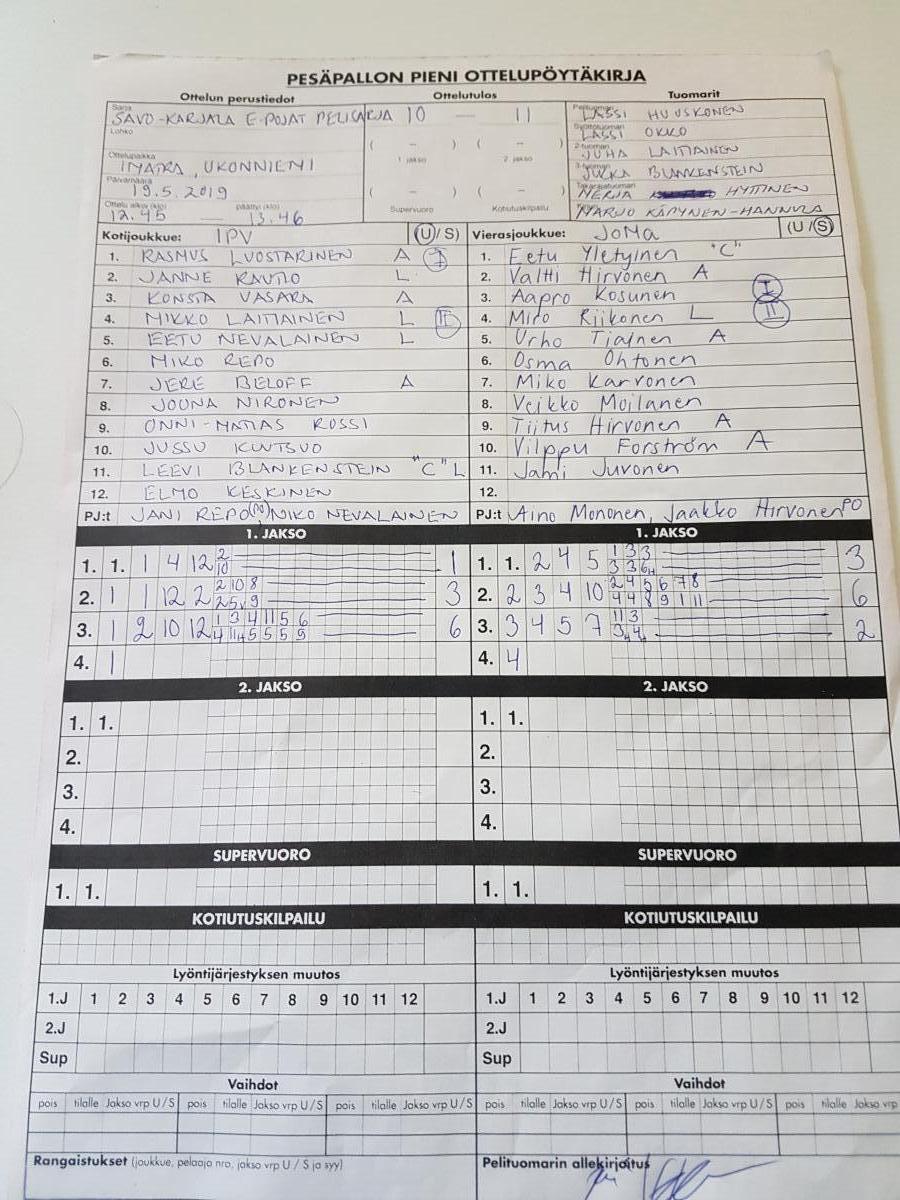 PESÄPALLON PIENI OTTELUPÖYTÄKIRJA
Ottelun perustiedot Ottelutulos Tuomarit
Sarja
SAVO-KARJALA E-POJAT PELISARJA 10 — 11
Pelituomari
LASSI HUUSKONEN
Lohko
Syöttötuomari
LASSI OKKO
Ottelupaikka
IMATRA, UKONNIEMI
( – ) ( – )
1. jakso 2. jakso
2-tuomari
JUHA LAITIAINEN
Päivämäärä
19.5.2019
3-tuomari
JUKKA BLANKENSTEIN
( – ) ( – )
Takarajatuomari
MERJA HYTTINEN
Ottelu alkoi (klo) päättyi (klo)
12.45 — 13.46
Supervuoro Kotiutuskilpailu
MARJO KÄPYNEN-HANNULA
Kotijoukkue: IPV (U/S) Vierasjoukkue: JoMa (U/S)
1. RASMUS LUOSTARINEN A I 1. Eetu Yletyinen "C"
2. JANNE RAUTIO L 2. Valtti Hirvonen A
3. KONSTA VASARA A 3. Aapro Kosunen I
4. MIKKO LAITIAINEN L II 4. Miro Riikonen L II
5. EETU NEVALAINEN L 5. Urho Tiainen A
6. MIKO REPO 6. Osma Ohtonen
7. JERE BELOFF A 7. Miko Karvonen
8. JOONA NIRONEN 8. Veikko Moilanen
9. ONNI-MATIAS ROSSI 9. Tiitus Hirvonen A
10. JUSSU KUUTSUO 10. Vilppu Forström A
11. LEEVI BLANKENSTEIN "C" L 11. Jami Juvonen
12. ELMO KESKINEN 12.
PJ:t JANI REPO (PO) NIKO NEVALAINEN PJ:t Aino Mononen, Jaakko Hirvonen PO
1. JAKSO 1. JAKSO
1. 1. 1 4 12 2 1 1. 1. 2 4 5 1 3 3 3
10 3 3 6H
2. 1 1 12 2 2 10 8 3 2. 2 3 4 10 2 4 5 6 7 8 6
2 5 9 4 4 8 9 1 11
3. 1 2 10 12 1 3 4 11 5 6 6 3. 3 4 5 7 11 3 2
4 11 5 5 5 9 3 4
4. 1 4. 4
2. JAKSO 2. JAKSO
1. 1. 1. 1.
2. 2.
3. 3.
4. 4.
SUPERVUORO SUPERVUORO
1. 1. 1. 1.
KOTIUTUSKILPAILU KOTIUTUSKILPAILU
Lyöntijärjestyksen muutos Lyöntijärjestyksen muutos
1.J 1 2 3 4 5 6 7 8 9 10 11 12 1.J 1 2 3 4 5 6 7 8 9 10 11 12
2.J 2.J
Sup Sup
Vaihdot Vaihdot
pois tilalle Jakso vrp U / S pois tilalle Jakso vrp U / S pois tilalle Jakso vrp U / S pois tilalle Jakso vrp U / S pois tilalle Jakso vrp U / S pois tilalle Jakso vrp
Rangaistukset (joukkue, pelaaja nro, jakso vrp U / S ja syy) Pelituomarin allekirjoitus